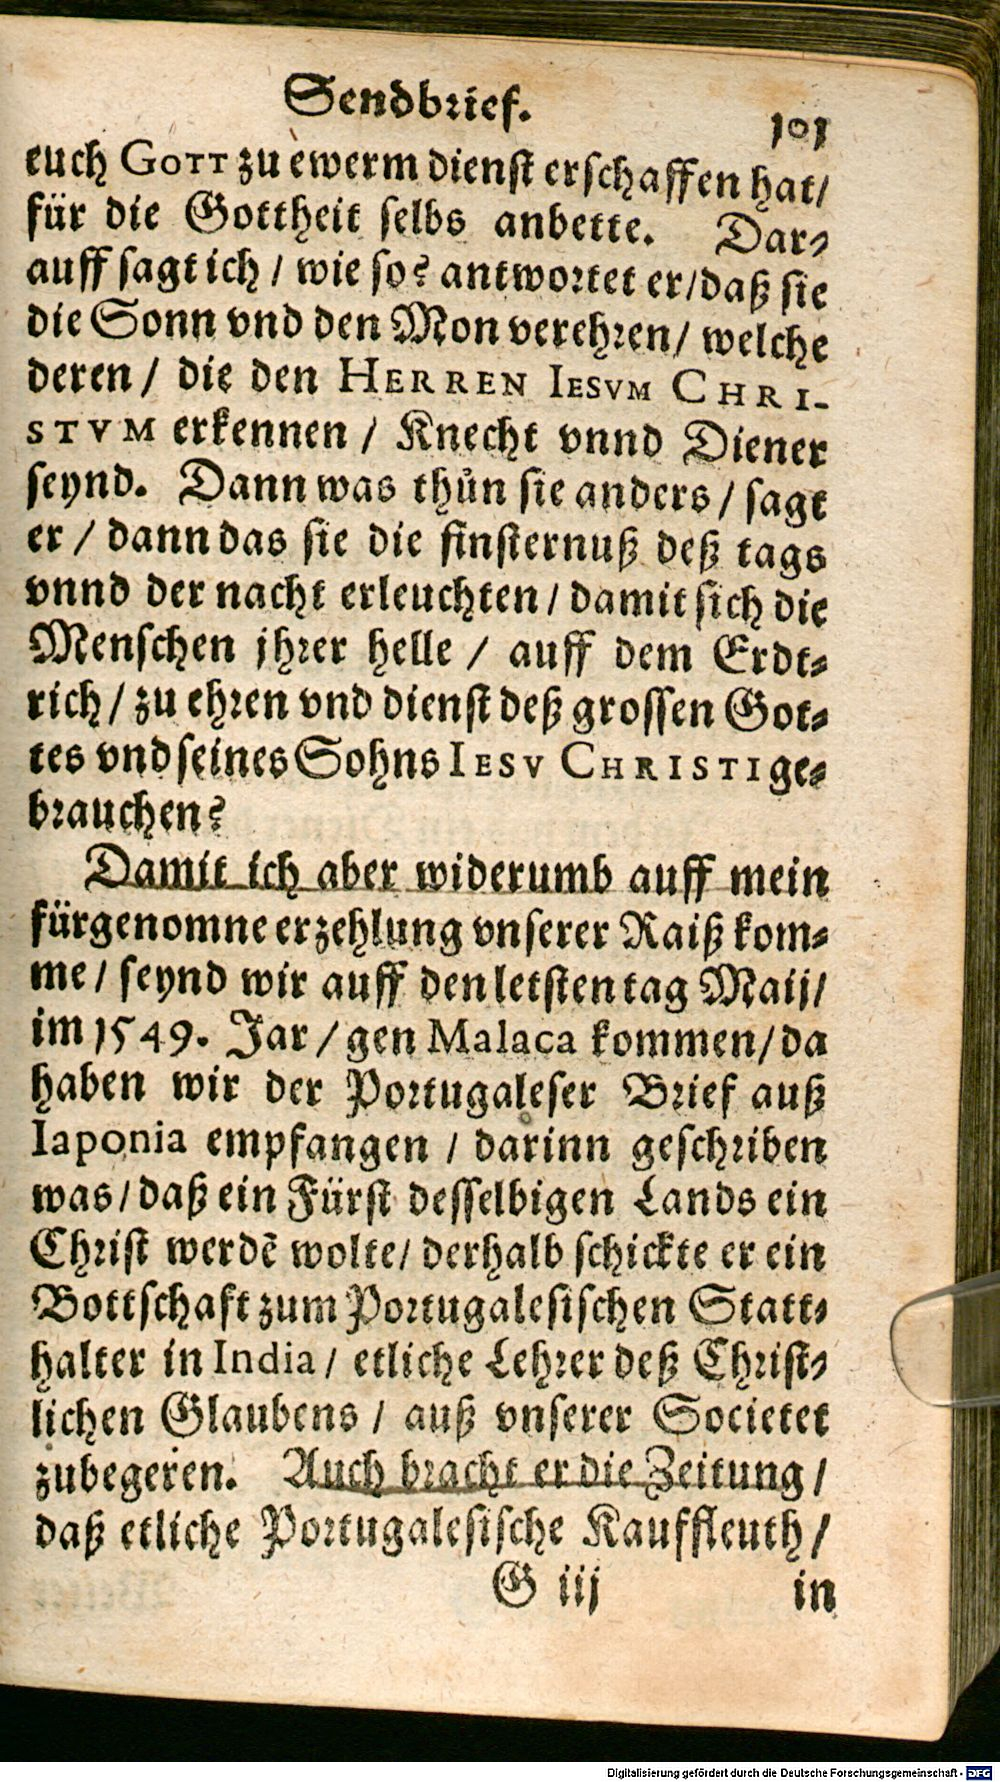 Sendbrief. 101
euch GOTT zu ewerm dienst erschaffen hat/
für die Gottheit selbs anbette. Dar-
auff sagt ich / wie so? antwortet er/daß sie
die Sonn vnd den Mon verehren/ welche
deren / die den HERREN IESVM CHRI-
STVM erkennen / Knecht vnnd Diener
seynd. Dann was thůn sie anders / sagt
er / dann das sie die finsternuß deß tags
vnnd der nacht erleuchten / damit sich die
Menschen jhrer helle / auff dem Erdt-
rich / zu ehren vnd dienst deß grossen Got-
tes vnd seines Sohns IESV CHRISTI ge-
brauchen?
Damit ich aber widerumb auff mein
fürgenomne erzehlung vnserer Raiß kom-
me / seynd wir auff den letsten tag Maij/
im 1549. Jar / gen Malaca kommen/ da
haben wir der Portugaleser Brief auß
Iaponia empfangen / darinn geschriben
was/ daß ein Fürst desselbigen Lands ein
Christ werdē wolte/ derhalb schickte er ein
Bottschaft zum Portugalesischen Statt-
halter in India / etliche Lehrer deß Christ-
lichen Glaubens / auß vnserer Societet
zubegeren. Auch bracht er die Zeitung /
daß etliche Portugalesische Kauffleuth /
G iij in
Digitalisierung gefördert durch die Deutsche Forschungsgemeinschaft - DFG